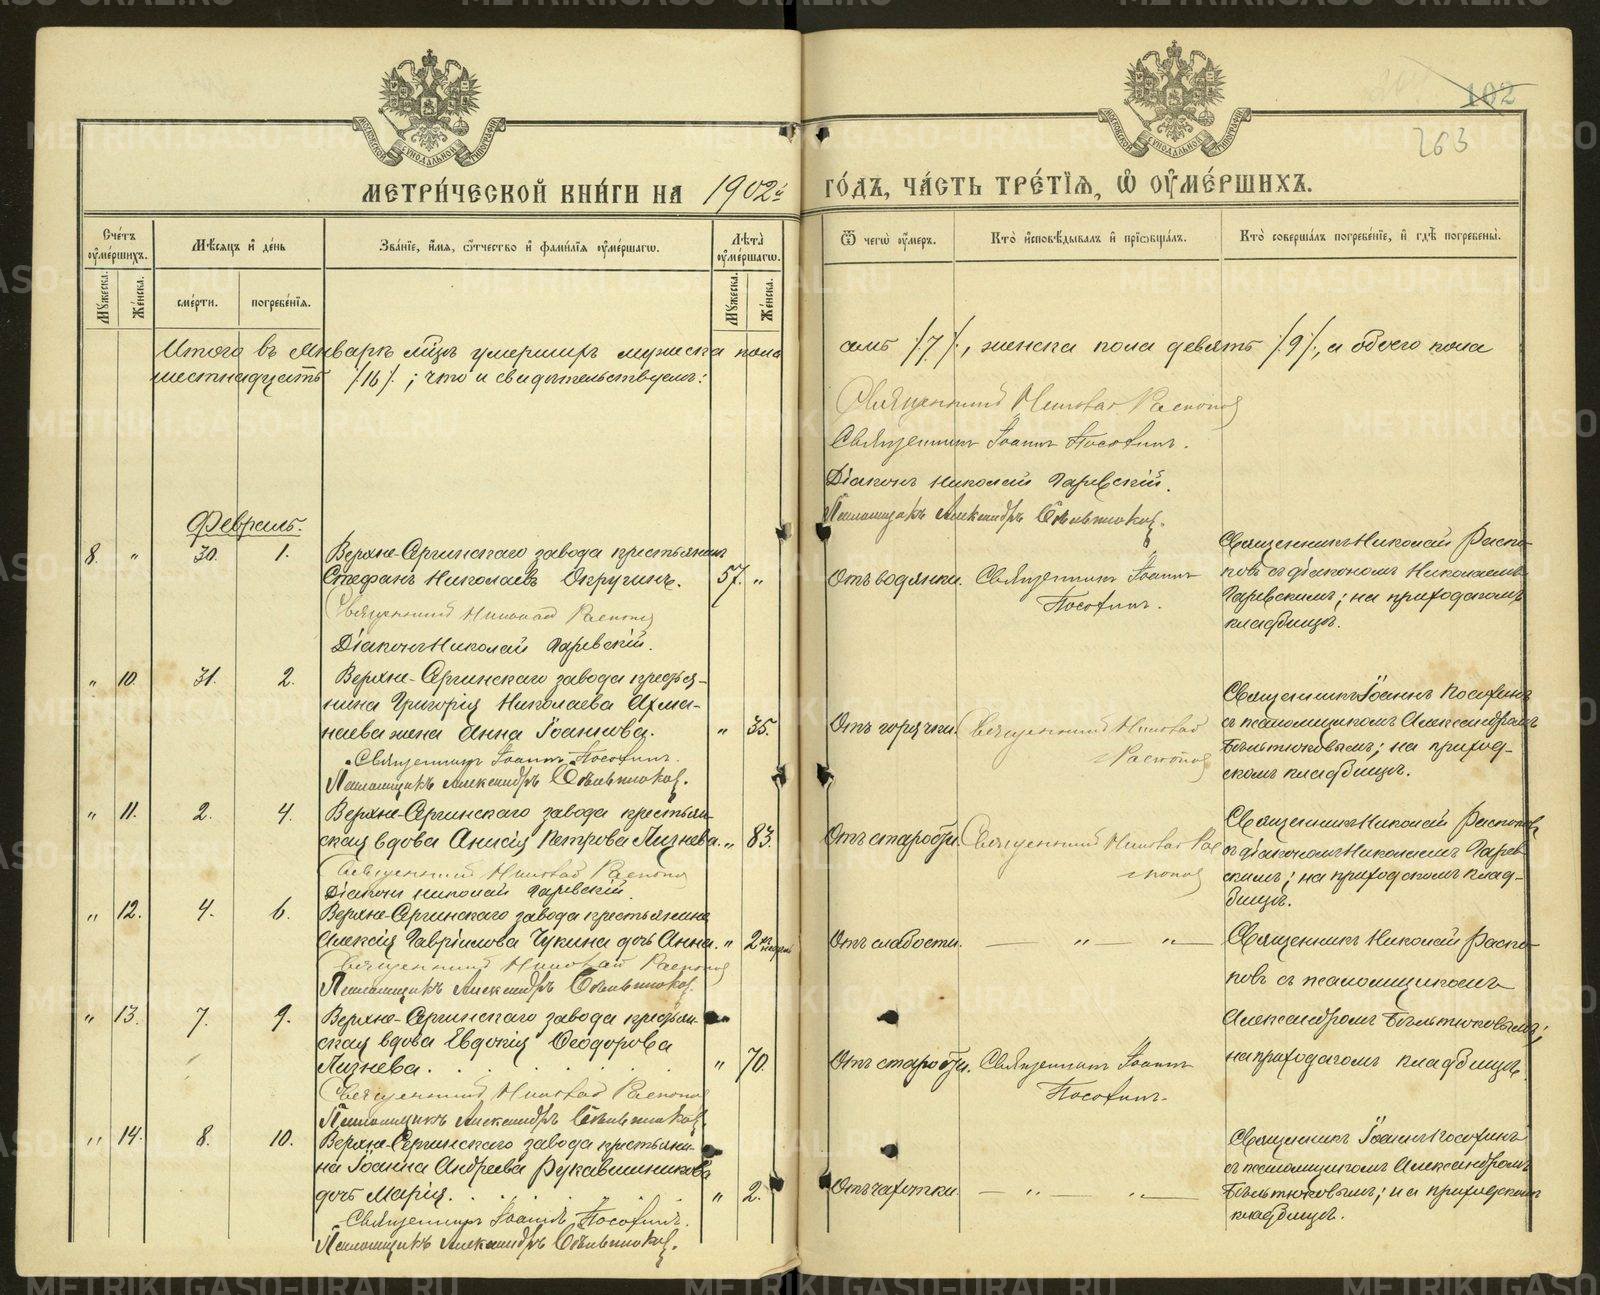 102
263
МЕТРИ́ЧЕСКОЙ КНИ́ГИ НА 1902й ГО́ДЪ, ЧА́СТЬ ТРЕ́ТІѦ, Ѡ҆ ОУ҆МЕ́РШИХЪ.
Сче́тъ оу҆ме́ршихъ.
Мѣ́сяцъ и҆ де́нь
Зва́нїе, и҆́мя, ѻ҆́тчество и҆ фами́лїя оу҆ме́ршагѡ.
Лѣ́та оу҆ме́ршагѡ.
Ѿ чегѡ̀ оу҆́меръ.
Кто̀ и҆сповѣ́дывалъ и҆ прїѡбща́лъ.
Кто̀ соверша́лъ погребе́нїе, и҆ гдѣ̀ погребены̀.
Мꙋ́жеска.
Же́нска.
сме́рти.
погребе́нїя.
Мꙋ́жеска.
Же́нска.
Итого въ Январѣ м-цѣ умершихъ мужеска пола семь /.7./, женска пола девять /.9./, а обоего пола
шестнадцать /.16./; что и свидѣтельствуемъ:
Священникъ Николай Распоповъ
Священникъ Іоаннъ Посохинъ.
Діаконъ Николай Гаревскій.
Псаломщикъ Александръ Бѣльтюковъ.
Февраль.
8. " 30. 1. Верхне-Сергинскаго завода крестьянинъ
Стефанъ Николаевъ Округинъ. 57. "
Священникъ Николай Распоповъ
Діаконъ Николай Гаревскій.
Отъ водянки. Священникъ Іоаннъ
Посохинъ.
Священникъ Николай Распо-
повъ съ діакономъ Николаемъ
Гаревскимъ; на приходскомъ
кладбищѣ.
" 10. 31. 2. Верхне-Сергинскаго завода крестья-
нина Григорія Николаева Ахма-
наева жена Анна Іоаннова. " 35.
Священникъ Іоаннъ Посохинъ.
Псаломщикъ Александръ Бѣльтюковъ.
Отъ горячки. Священникъ Николай
Распоповъ
Священникъ Іоаннъ Посохинъ
съ псаломщикомъ Александромъ
Бѣльтюковымъ; на приход-
скомъ кладбищѣ.
" 11. 2. 4. Верхне-Сергинскаго завода крестьян-
ская вдова Анисія Петрова Лузнева. " 83.
Священникъ Николай Распоповъ
Діаконъ Николай Гаревскій.
Отъ старости. Священникъ Николай Рас-
поповъ
Священникъ Николай Распоповъ
съ діакономъ Николаемъ Гарев-
скимъ; на приходскомъ клад-
бищѣ.
" 12. 4. 6. Верхне-Сергинскаго завода крестьянина
Алексія Гавріилова Чукина дочь Анна. " 2
Священникъ Николай Распоповъ
Псаломщикъ Александръ Бѣльтюковъ.
Отъ слабости. — " — " —
Священникъ Николай Распо-
повъ съ псаломщикомъ
Александромъ Бѣльтюковымъ;
на приходскомъ кладбищѣ.
" 13. 7. 9. Верхне-Сергинскаго завода крестьян-
ская вдова Евдокія Ѳеодорова
Лузнева. " 70.
Священникъ Николай Распоповъ
Псаломщикъ Александръ Бѣльтюковъ.
Отъ старости. Священникъ Іоаннъ
Посохинъ.
" 14. 8. 10. Верхне-Сергинскаго завода крестьяни-
на Іоанна Андреева Рукавишникова
дочь Марія. " 2.
Священникъ Іоаннъ Посохинъ.
Псаломщикъ Александръ Бѣльтюковъ.
Отъ чахотки. — " — " —
Священникъ Іоаннъ Посохинъ
съ псаломщикомъ Александромъ
Бѣльтюковымъ; на приходскомъ
кладбищѣ.
METRIKI.GASO-URAL.RU